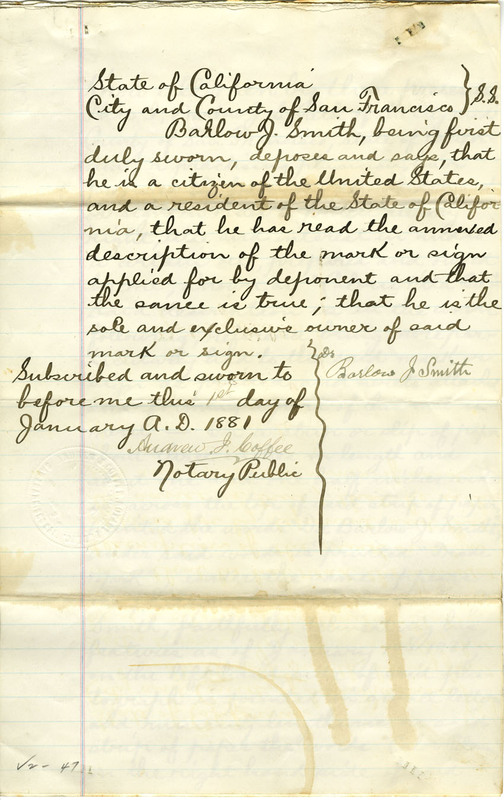 State of California
City and County of San Francisco } S.S.
Barlow J. Smith, being first
duly sworn, deposes and says, that
he is a citizen of the United States,
and a resident of the State of Califor
nia, that he has read the annexed
description of the mark or sign
applied for by deponent and that
the same is true; that he is the
sole and exclusive owner of said
mark or sign.
Subscribed and sworn to
before me this 1st day of
January A.D. 1881
Andrew J. Coffee
Notary Public
Dr
Barlow J Smith
47